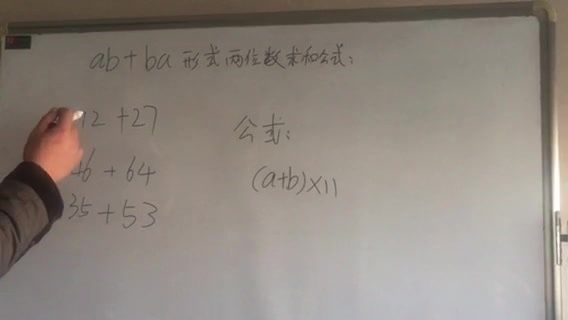 ab+ba 形式两位数求和公式:
72+27
46+64
35+53
公式:
(a+b)×11